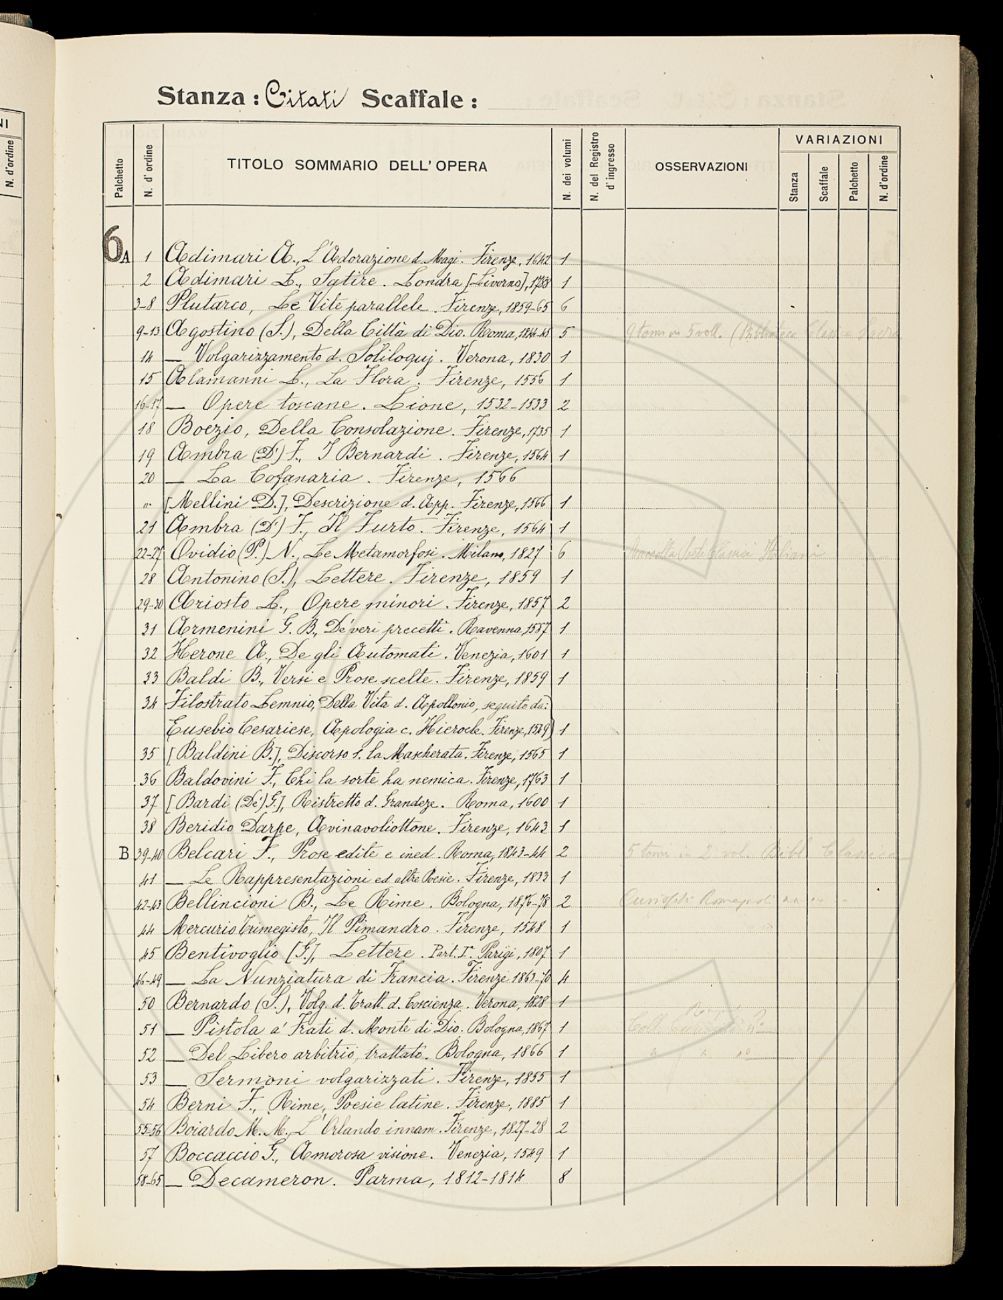 NI
N. d'ordine
Stanza: Citati Scaffale:
Palchetto
N. d'ordine
TITOLO SOMMARIO DELL'OPERA
N. dei volumi
N. del Registro d'ingresso
OSSERVAZIONI
VARIAZIONI
Stanza
Scaffale
Palchetto
N. d'ordine
6
A 1 Adimari A., L'Adorazione d. Magi. Firenze, 1642 1
2 Adimari L., Satire. Londra [Livorno], 1788 1
3-8 Plutarco, Le Vite parallele. Firenze, 1859-65 6
9-13 Agostino (S.), Della Città di Dio. Roma, 5 9 tomi in 5 voll. (Biblioteca Classica Sacra
14 — Volgarizzamento d. Soliloquj. Verona, 1830 1
15 Alamanni L., La Flora. Firenze, 1556 1
16-17 — Opere toscane. Lione, 1532-1533 2
18 Boezio, Della Consolazione. Firenze, 1735 1
19 Ambra (D') F., I Bernardi. Firenze, 1564 1
20 — La Cofanaria. Firenze, 1566
" [Mellini D.], Descrizione d. App. Firenze, 1566 1
21 Ambra (D') F., Il Furto. Firenze, 1564 1
22-27 Ovidio (P.) N., Le Metamorfosi. Milano, 1827 6 Classici Italiani
28 Antonino (S.), Lettere. Firenze, 1859 1
29-30 Ariosto L., Opere minori. Firenze, 1857 2
31 Armenini G. B., De' veri precetti. Ravenna, 1587 1
32 Herone A., De gli Automati. Venezia, 1601 1
33 Baldi B., Versi e Prose scelte. Firenze, 1859 1
34 Filostrato Lemnio, Della Vita d. Apollonio, seguito da:
Eusebio Cesariese, Apologia c. Hierocle. Firenze, 1549) 1
35 [Baldini B.], Discorso s. la Mascherata. Firenze, 1565 1
36 Baldovini F., Chi la sorte ha nemica. Firenze, 1763 1
37 [Bardi (De') G.], Ristretto d. Grandeze. Roma, 1600 1
38 Beridio Darpe, Avinavoliottone. Firenze, 1643 1
B 39-40 Belcari F., Prose edite e ined. Roma, 1843-44 2 5 tomi in 2 vol. Bibl. Classica
41 — Le Rappresentazioni ed altre Poesie. Firenze, 1833 1
42-43 Bellincioni B., Le Rime. Bologna, 1876-78 2 Curiosità
44 Mercurio Trimegisto, Il Pimandro. Firenze, 1548 1
45 Bentivoglio [G.], Lettere. Part. Iª. Parigi, 1807 1
46-49 — La Nunziatura di Francia. Firenze 1863-70 4
50 Bernardo (S.), Volg. d. Tratt. d. Coscienza. Verona, 1828 1
51 — Pistola a' Frati d. Monte di Dio. Bologna, 1867 1
52 — Del Libero arbitrio, trattato. Bologna, 1866 1
53 — Sermoni volgarizzati. Firenze, 1855 1
54 Berni F., Rime, Poesie latine. Firenze, 1885 1
55-56 Boiardo M. M., L'Orlando innam. Firenze, 1827-28 2
57 Boccaccio G., Amorosa visione. Venezia, 1549 1
58-65 — Decameron. Parma, 1812-1814 8